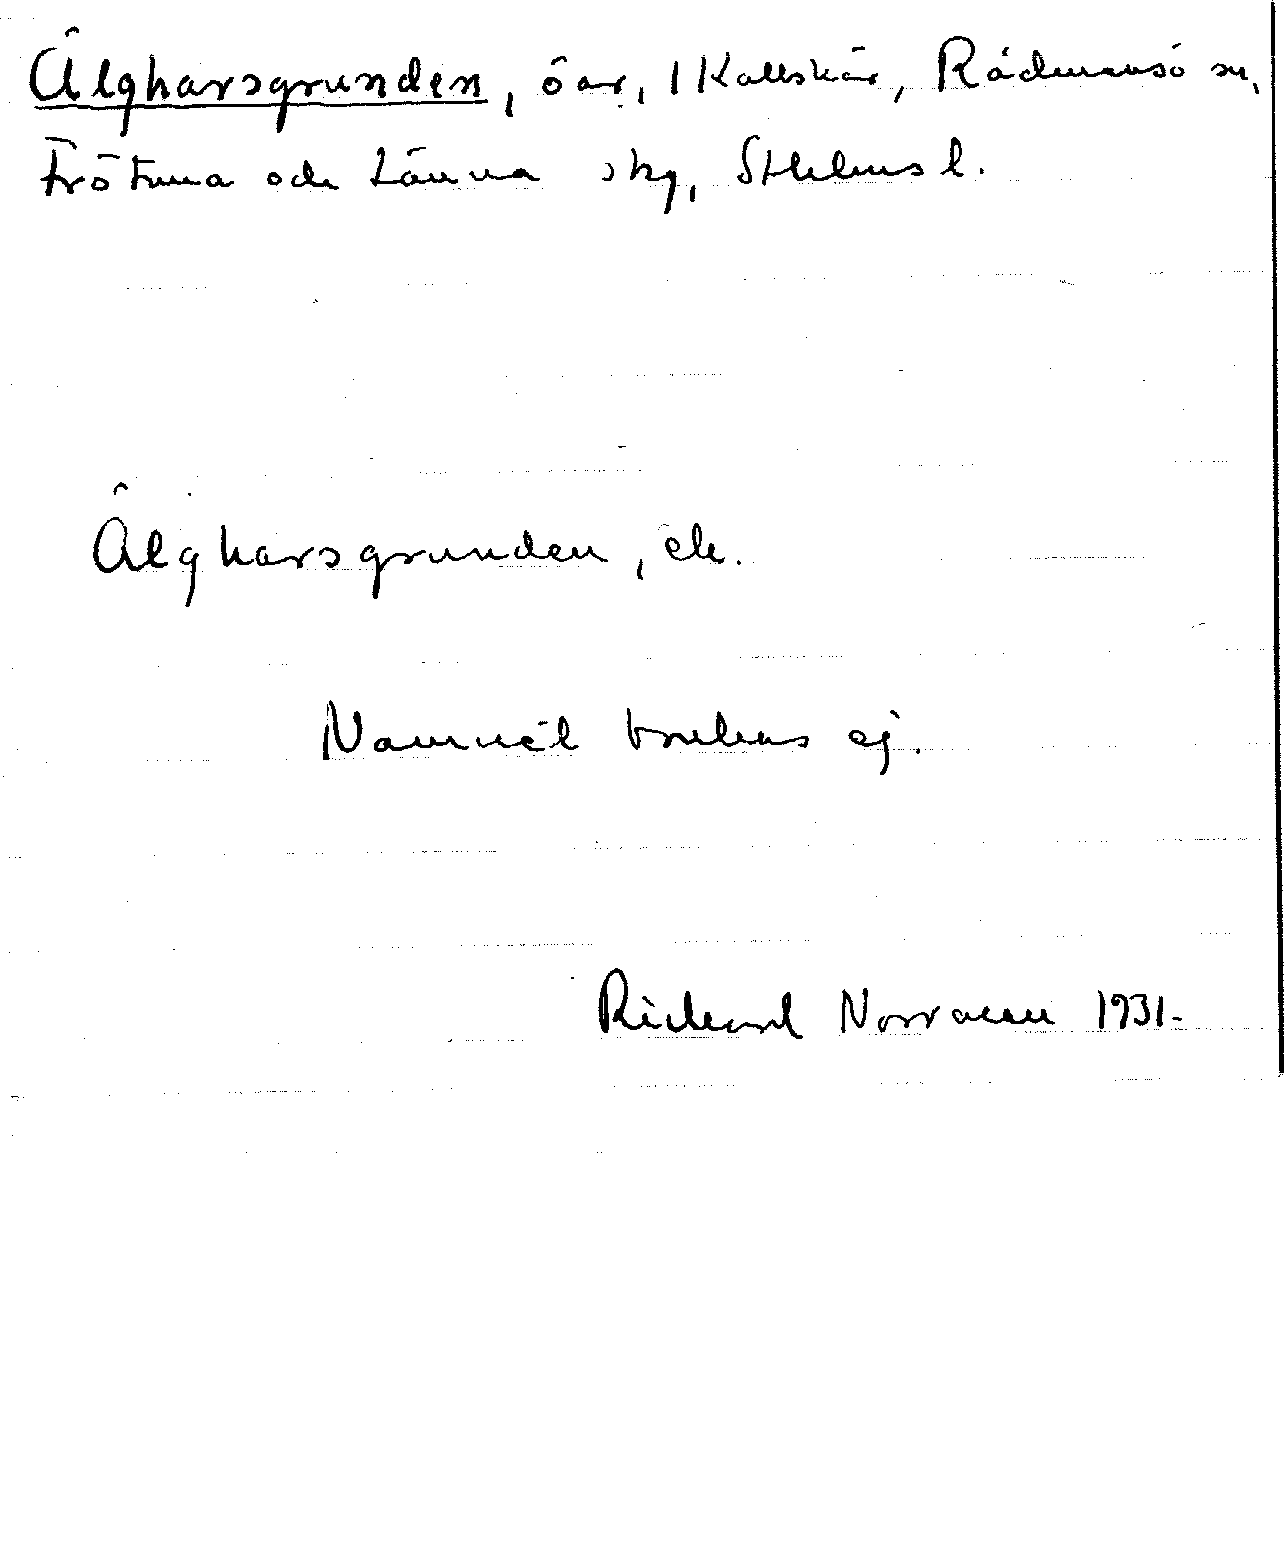 Älgharsgrunden, öar, 1 Kallskär, Rådmansö sn,
Frötuna och Länna skg, Sthlms l.
Älgharsgrunden, ek.
Namnet brukas ej.
Richard Norrman 1931.